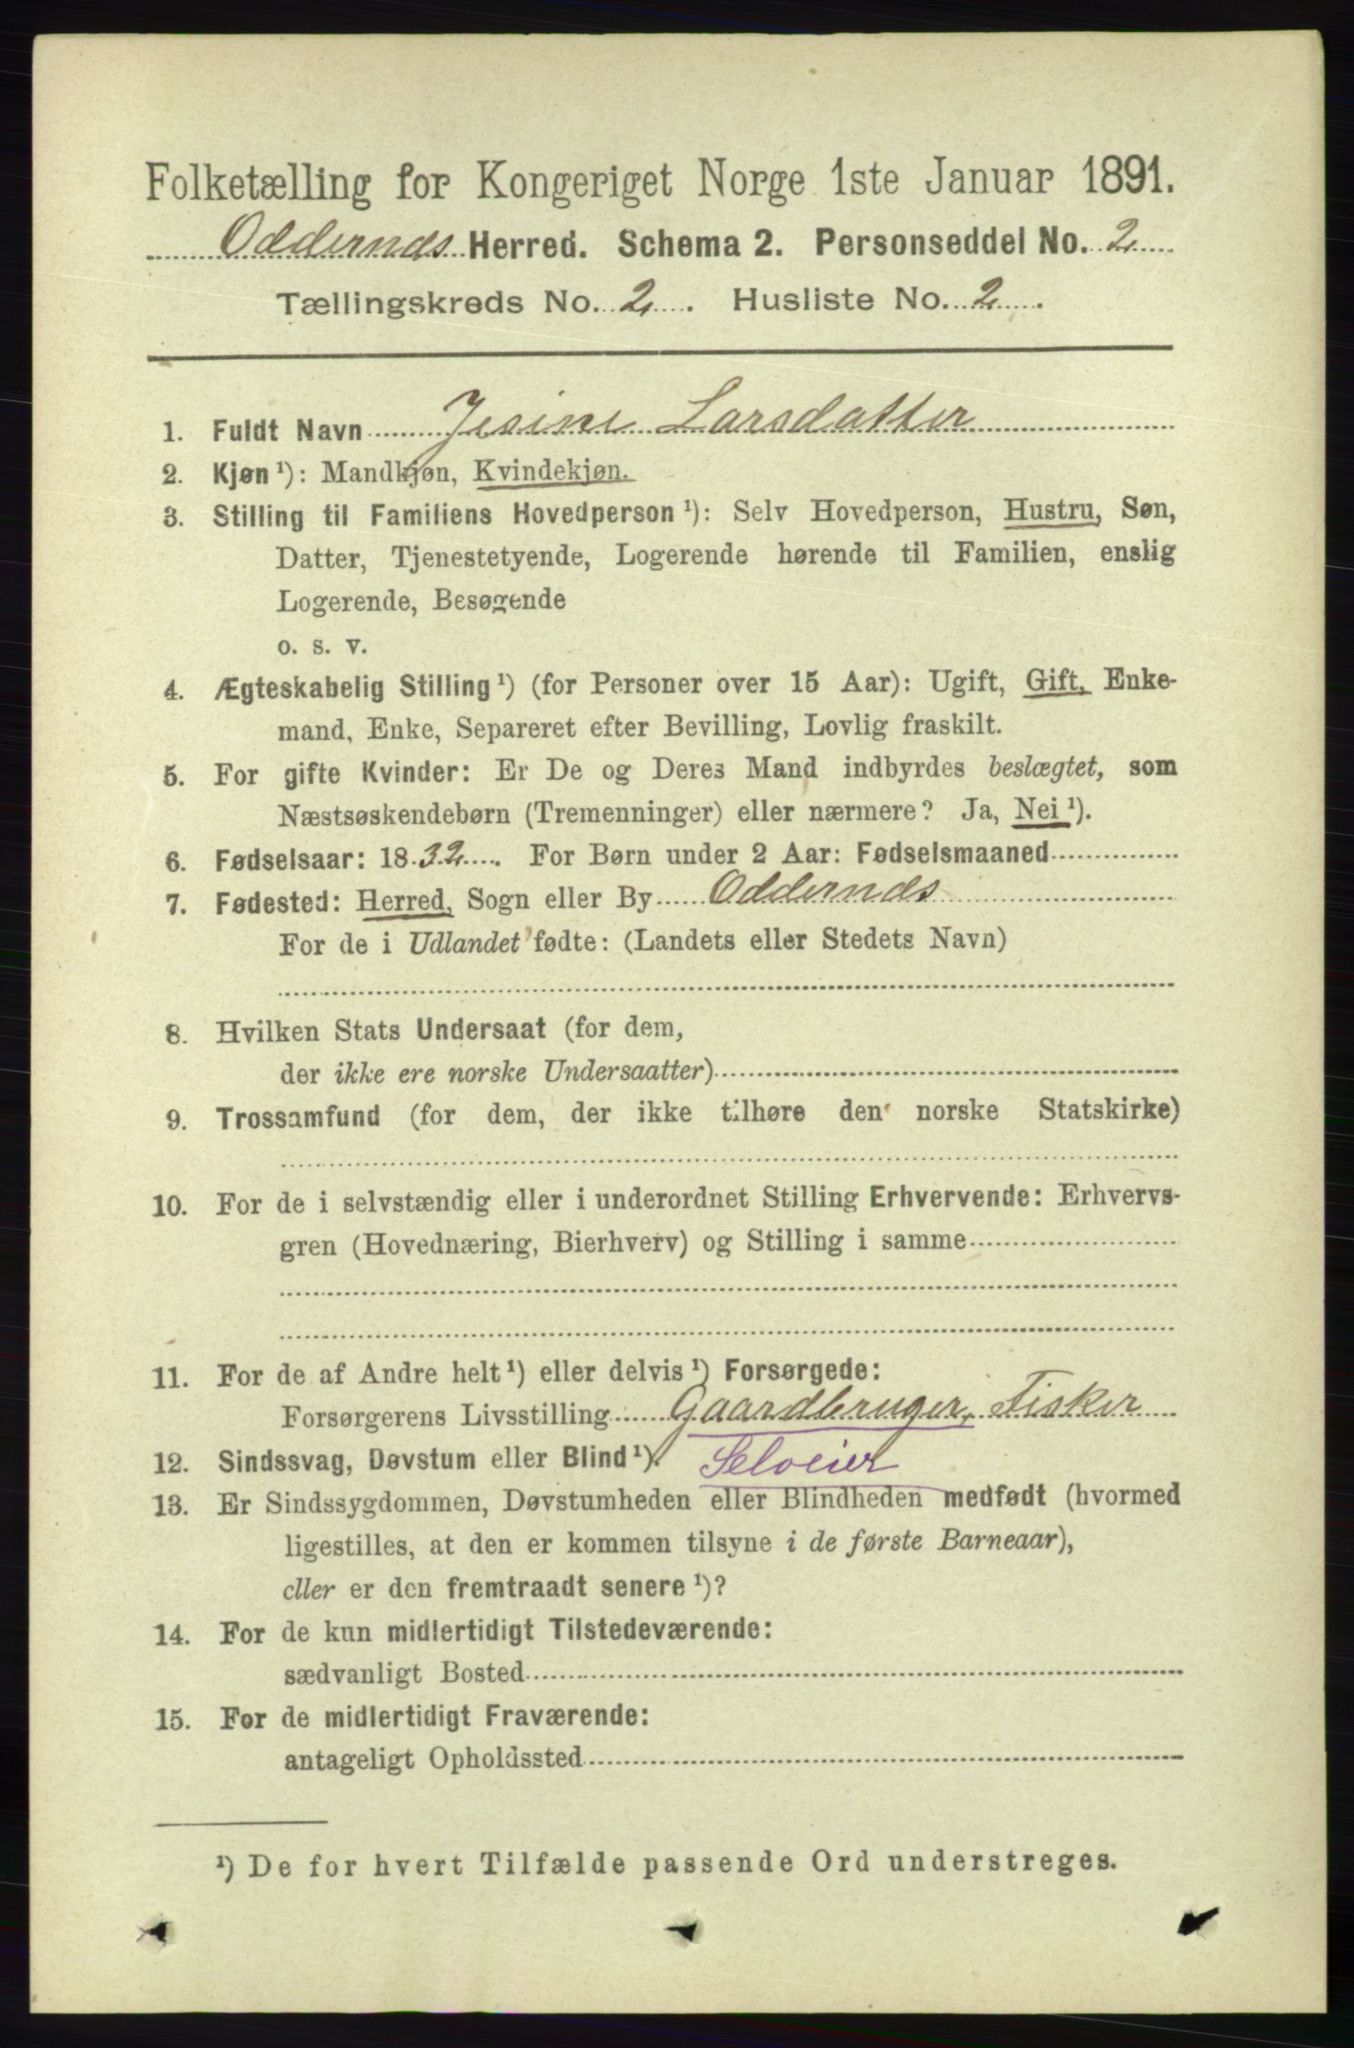 Folketælling for Kongeriget Norge 1ste Januar 1891.
Oddernes Herred. Schema 2. Personseddel No. 2
Tællingskreds No. 2. Husliste No. 2.
1. Fuldt Navn Jesine Larsdatter
2. Kjøn ¹): Mandkjøn, Kvindekjøn.
3. Stilling til Familiens Hovedperson ¹): Selv Hovedperson, Hustru, Søn,
Datter, Tjenestetyende, Logerende hørende til Familien, enslig
Logerende, Besøgende
o. s. v.
4. Ægteskabelig Stilling ¹) (for Personer over 15 Aar): Ugift, Gift, Enke-
mand, Enke, Separeret efter Bevilling, Lovlig fraskilt.
5. For gifte Kvinder: Er De og Deres Mand indbyrdes beslægtet, som
Næstsøskendebørn (Tremenninger) eller nærmere? Ja, Nei ¹).
6. Fødselsaar: 1832. For Børn under 2 Aar: Fødselsmaaned
7. Fødested: Herred, Sogn eller By Oddernes
For de i Udlandet fødte: (Landets eller Stedets Navn)
8. Hvilken Stats Undersaat (for dem,
der ikke ere norske Undersaatter)
9. Trossamfund (for dem, der ikke tilhøre den norske Statskirke)
10. For de i selvstændig eller i underordnet Stilling Erhvervende: Erhvervs-
gren (Hovednæring, Bierhverv) og Stilling i samme
11. For de af Andre helt ¹) eller delvis ¹) Forsørgede:
Forsørgerens Livsstilling Gaardbruger, Fisker
12. Sindssvag, Døvstum eller Blind ¹). Selveier
13. Er Sindssygdommen, Døvstumheden eller Blindheden medfødt (hvormed
ligestilles, at den er kommen tilsyne i de første Barneaar),
eller er den fremtraadt senere ¹)?
14. For de kun midlertidigt Tilstedeværende:
sædvanligt Bosted
15. For de midlertidigt Fraværende:
antageligt Opholdssted
¹) De for hvert Tilfælde passende Ord understreges.